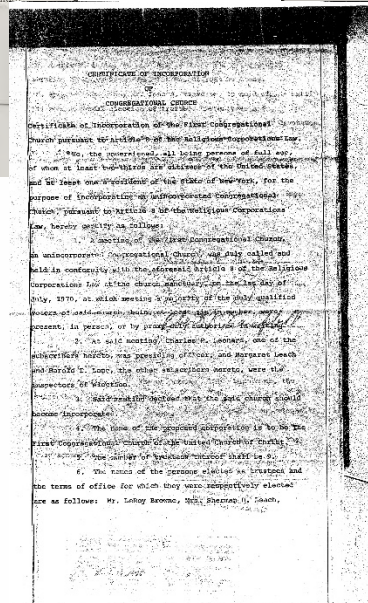 CERTIFICATE OF INCORPORATION
OF
CONGREGATIONAL CHURCH
Certificate of Incorporation of the First Congregational
Church pursuant to Article 8 of the Religious Corporations Law.
We, the undersigned, all being persons of full age,
of whom at least two-thirds are citizens of the United States
and at least one a resident of the State of New York, for the
purpose of incorporating an unincorporated Congregational
Church, pursuant to Article 8 of the Religious Corporations
Law, hereby certify as follows:
1. A meeting of the First Congregational Church,
an unincorporated Congregational Church, was duly called and
held in conformity with the aforesaid Article 8 of the Religious
Corporations Law at the church sanctuary, on the day of
July, 1970, at which meeting a majority of the duly qualified
voters of said church, being at least six in number, were
present, in person, or by proxy
2. At said meeting, Charles P. Leonard, one of the
subscribers hereto, was presiding officer, and Margaret Leach
and Harold E. the other subscribers hereto, were the
inspectors of election.
3. Said meeting decided that the said church should
become incorporate.
4. The name of the proposed corporation is to be the
First Congregational Church of the United Church of Christ.
5. The number of trustees thereof shall be 9.
6. The names of the persons elected as trustees and
the terms of office for which they were respectively elected
are as follows: Mr. LeRoy Browne, Mrs. Sherman H. Leach,